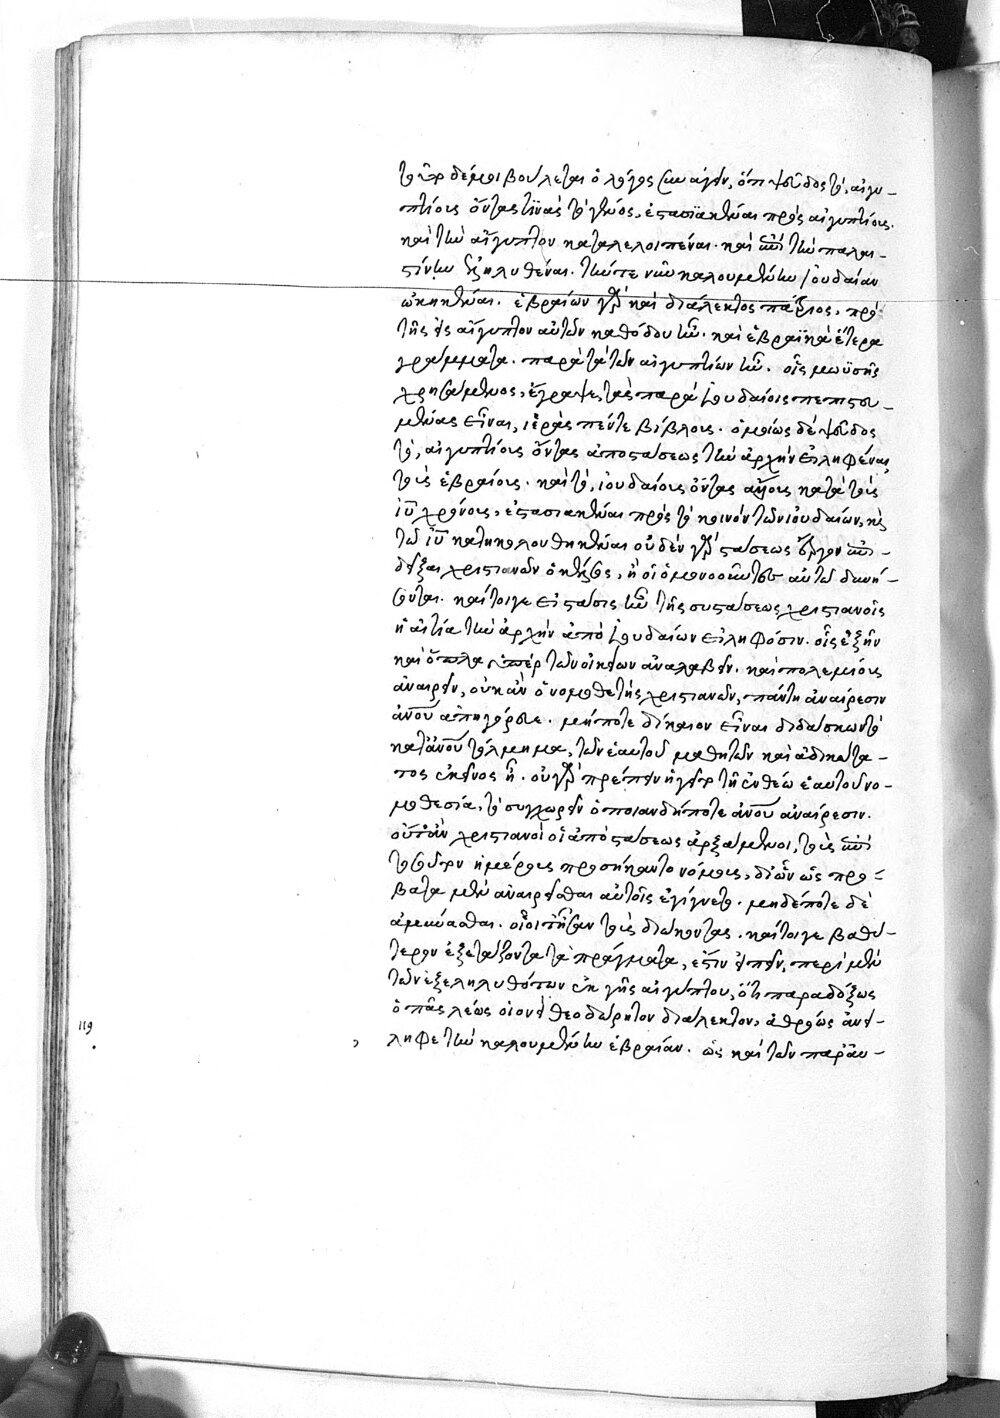 τοῦτο δέ μοι βούλεται ὁ λόγος συναγειν, ὅτι ψεῦδος τὸ, αἰγυ-
πτίους ὄντας τινὰς τὸ γένος, ἐστασιακέναι πρὸς αἰγυπτίους.
καὶ τὴν αἴγυπτον καταλελοιπέναι. καὶ ἐπὶ τὴν παλαι-
στίνην ἐξεληλυθέναι. τήν τε νῦν καλουμένην ἰουδαίαν
ᾠκηκέναι. ἑβραίων γὰρ καὶ διάλεκτος πάτριος, πρὸ
τῆς εἰς αἴγυπτον αὐτῶν καθόδου ἦν. καὶ ἑβραϊκὰ ἕτερα
γράμματα. παρὰ τὰ τῶν αἰγυπτίων ἦν. οἷς μωϋσῆς
χρησάμενος, ἔγραψε τὰς παρὰ ἰουδαίοις πεπιστευ-
μένας εἶναι, ἱερὰς πέντε βίβλους. ὁμοίως δὲ ψεῦδος
τὸ, αἰγυπτίους ὄντας ἀπὸ στάσεως τὴν ἀρχὴν εἰληφέναι
τοὺς ἑβραίους. καὶ τὸ, ἰουδαίους ὄντας ἄλλους κατὰ τοὺς
ἰῦ χρόνους, ἐστασιακέναι πρὸς τὸ κοινὸν τῶν ἰουδαίων, κὶ
τῷ ἰῦ κατηκολουθηκέναι οὐδὲν γὰρ στάσεως ἔργον ἐπι-
δεῖξαι χριστιανῶν ὁ κέλσος, ἢ οἱ ὁμονοοῦντες αὐτῷ δυνή-
σονται. καίτοιγε εἰ στάσις ἦν τῆς συστάσεως χριστιανοῖς
ἡ αἰτία τὴν ἀρχὴν ἀπὸ ἰουδαίων εἰληφόσιν. οἷς ἐξῆν
καὶ ὅπλα ὑπὲρ τῶν οἰκείων ἀναλαβεῖν. καὶ πολεμίους
ἀναιρεῖν, οὐκ ἂν ὁ νομοθέτης χριστιανῶν, πάντη ἀναίρεσιν
ἀνου ἀπηγόρευε. μήποτε δίκαιον εἶναι διδάσκων τὸ
κατ' ἀνου τόλμημα, τῶν ἑαυτοῦ μαθητῶν κἂν ἀδικώτα-
τος ἐκεῖνος ᾖ. οὐ γὰρ πρέπειν ἡγεῖτο τῇ ἐνθέῳ ἑαυτοῦ νο-
μοθεσίᾳ, τὸ συγχωρεῖν ὁποιανδήποτε ἀνου ἀναίρεσιν.
οὔτ' ἂν χριστιανοὶ οἱ ἀπὸ στάσεως ἀρξάμενοι, τοὺς ἐπὶ
τοσοῦτον ἡμέρους προσήκαντο νόμους, δι' ὧν ὡς πρό-
βατα μὲν ἀναιρεῖσθαι αὐτοῖς ἐγίγνετο. μηδέποτε δὲ
ἀμύνασθαι. οἷοί τ' ἦσαν τοὺς διώκοντας. καίτοιγε βαθύ-
τερον ἐξετάζοντα τὰ πράγματα, ἔστιν εἰπεῖν, περὶ μὲν
τῶν ἐξεληλυθότων ἐκ γῆς αἰγύπτου, ὅτι παραδόξως
ὁ πᾶς λεὼς οἱονεὶ θεοδώρητον διάλεκτον, ἀθρόως ἀνεί-
ληφε τὴν καλουμένην ἑβραίαν. ὡς καὶ τῶν παρ' αὐ-
119